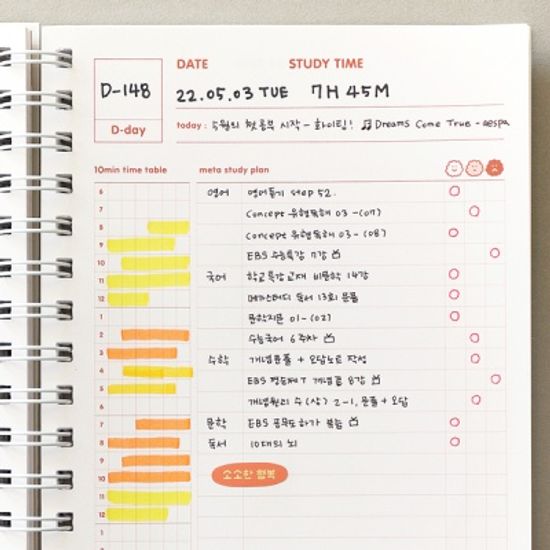 DATE STUDY TIME
D-148 22.05.03 TUE 7H 45M
D-day today : 5월의 첫 공부 시작 - 화이팅! ♬Dreams Come True - aespa
10min time table meta study plan
6 영어 영어듣기 step 52.
7 Concept 유형독해 03 -(07)
8 Concept 유형독해 03 - (08)
9 EBS 수능특강 7강
10 국어 학교특강교재 비문학 14강
11 메가스터디 독서 13회 문풀
12 문학지문 01-(02)
1 수능국어 6주차
2 수학 개념문풀 + 오답노트 작성
3 EBS 개념끝 8강
4 개념원리 수(상) 2-1, 문풀 + 오답
5 문학 EBS 복습
6 독서 10대의 뇌
7
8 소소한 행복
9
10
11
12
1